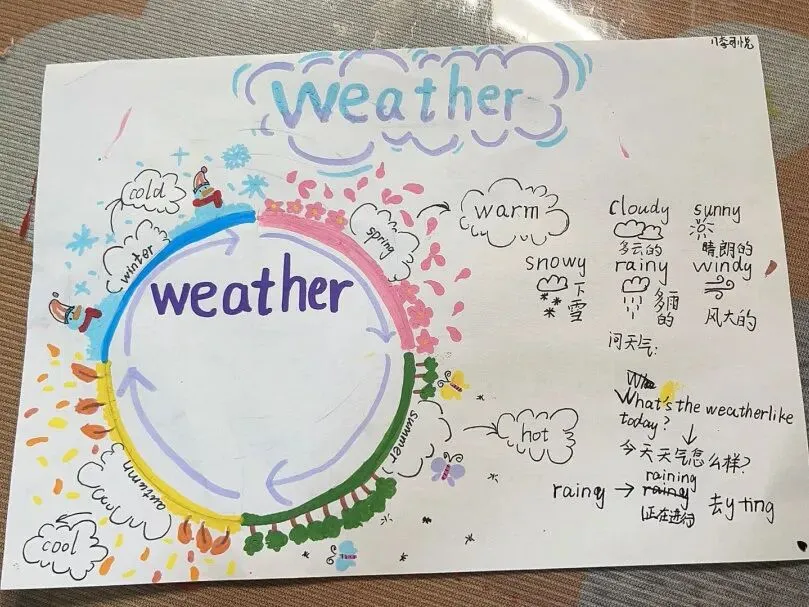 weather
cold
winter
spring
warm
weather
summer
hot
autumn
cool
cloudy
多云的
sunny
晴朗的
snowy
下雪
rainy
多雨的
windy
风大的
问天气:
What's the weatherlike
today?
今天天气怎么样?
raining
rainy → rainy 去y ting
(正在进行)